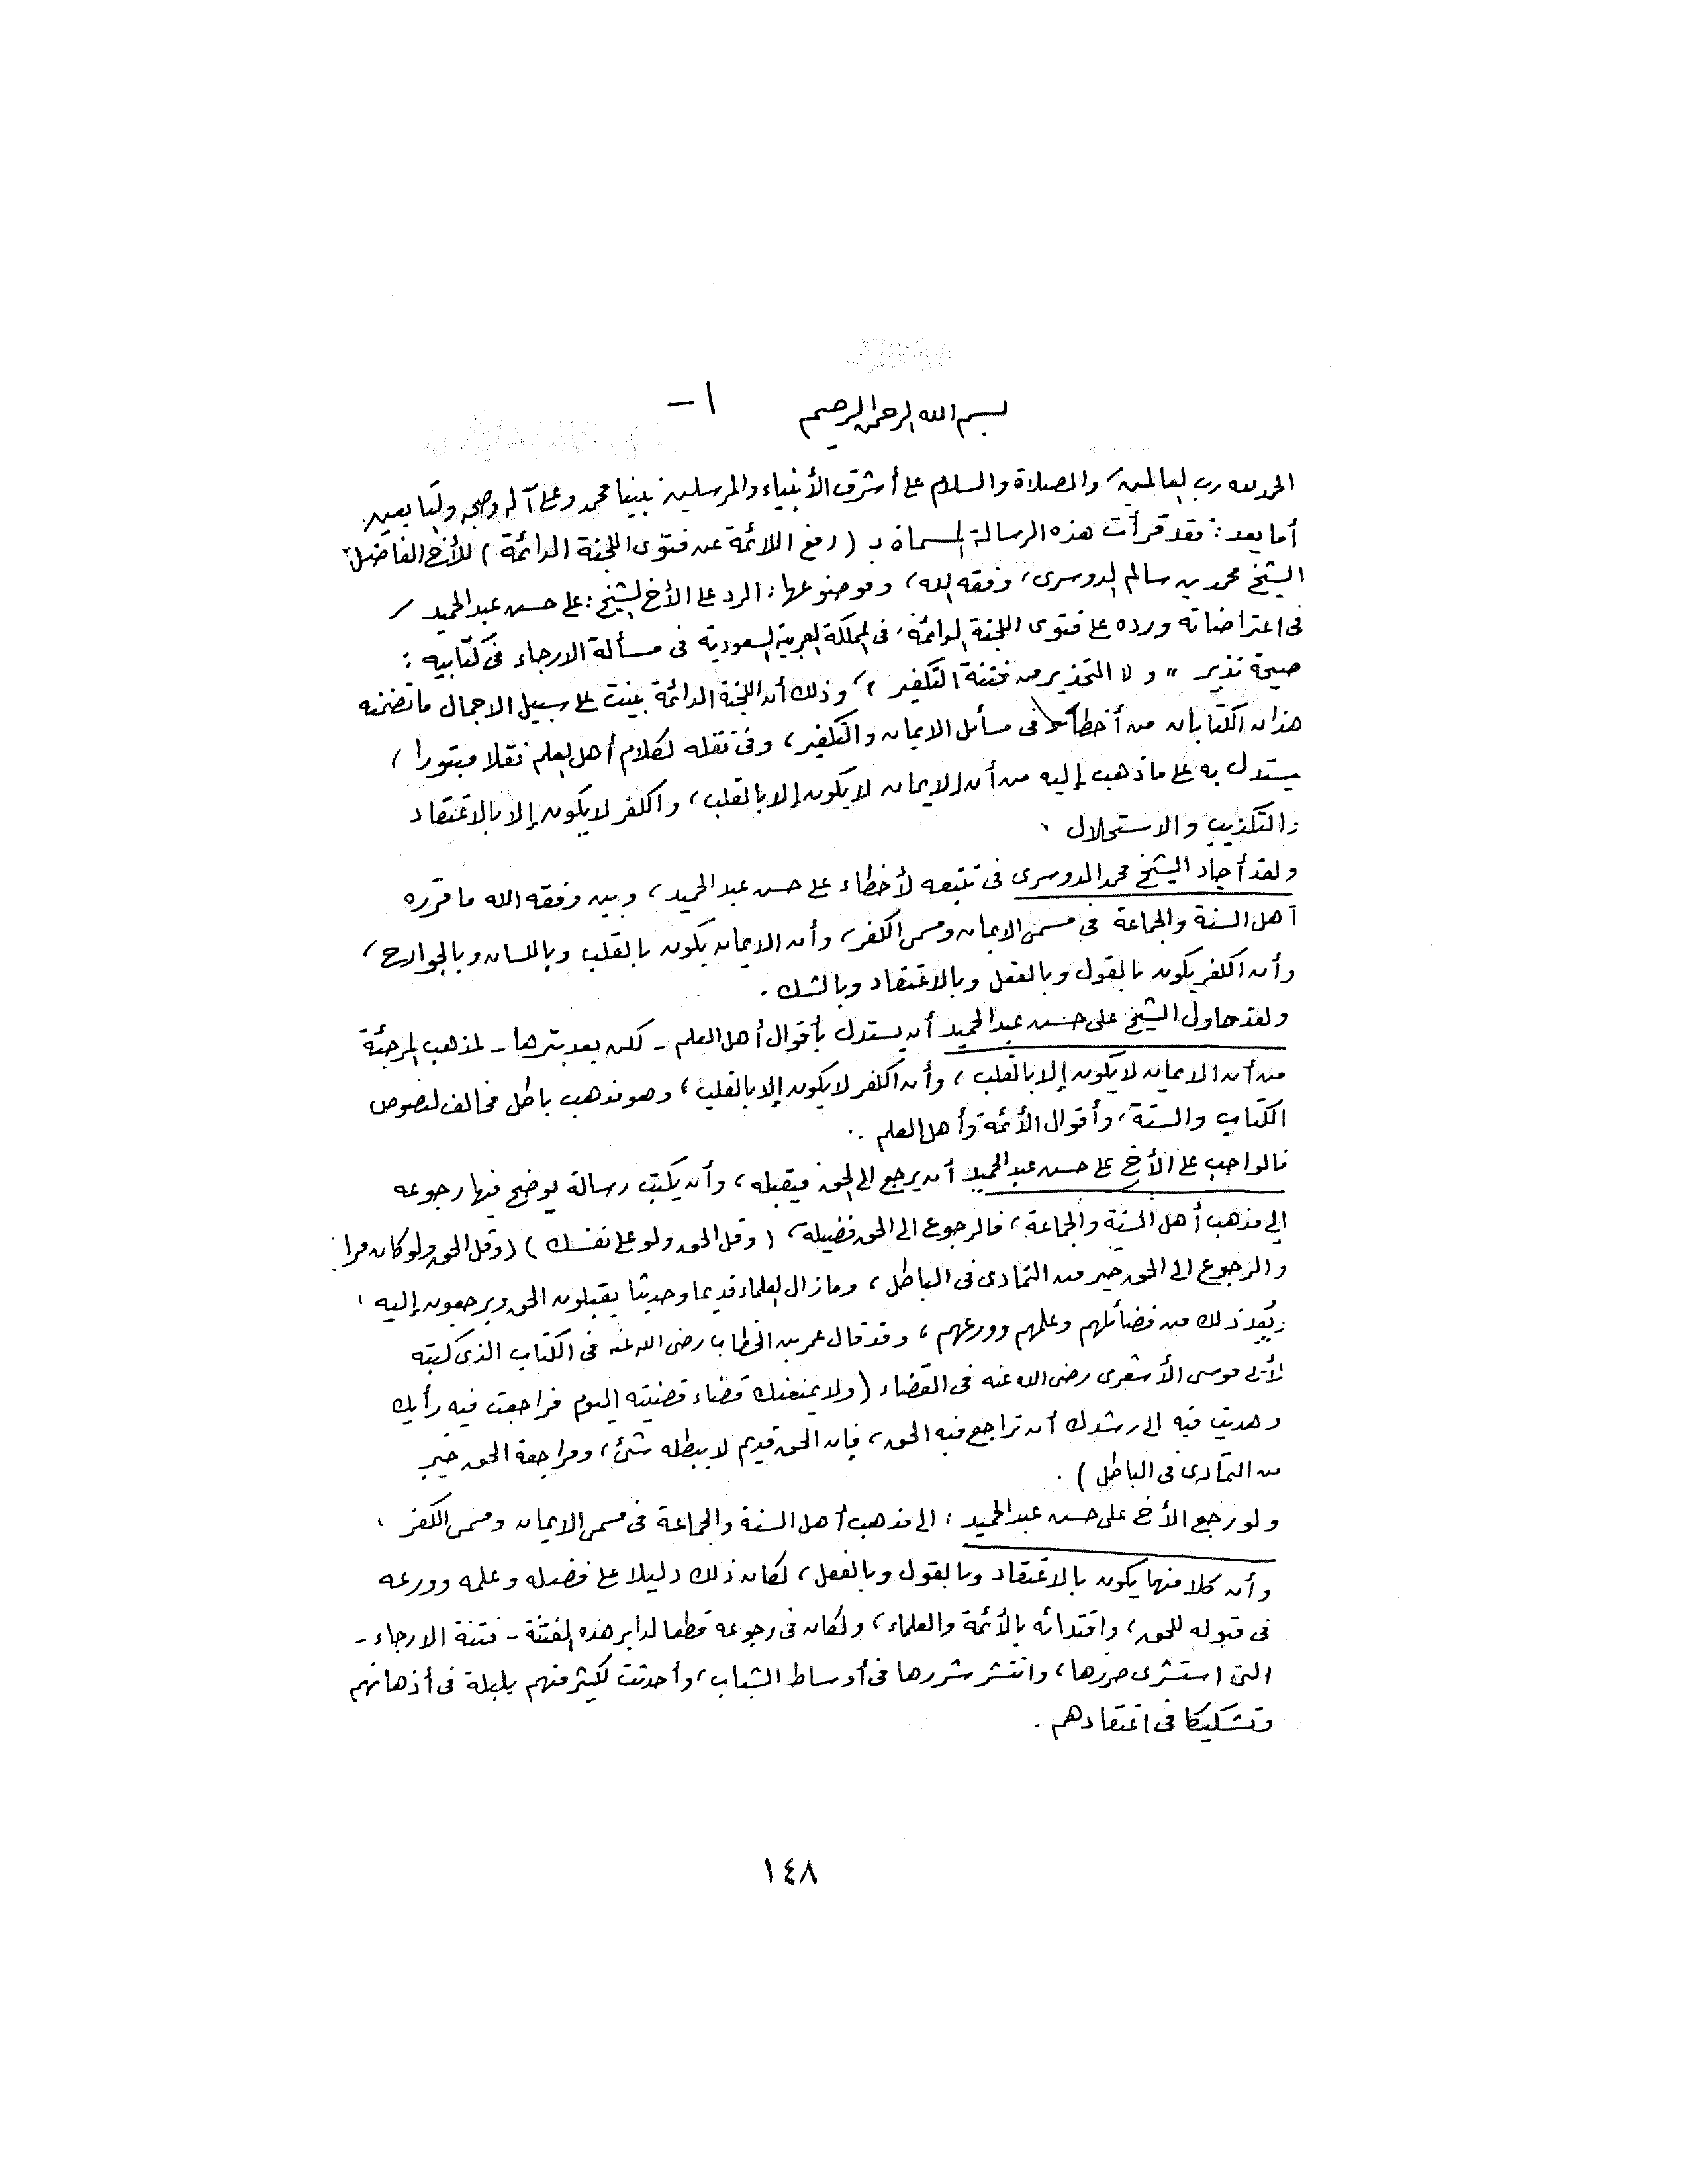 بسم الله الرحمن الرحيم ١-
الحمد لله رب العالمين، والصلاة والسلام على أشرف الأنبياء والمرسلين نبينا محمد وعلى آله وصحبه والتابعين.
أما بعد: فقد قرأت هذه الرسالة المسماة بـ (رفع اللائمة عن فتوى اللجنة الدائمة) للأخ الفاضل
الشيخ محمد بن سالم الدوسري، وفقه الله، وموضوعها: الرد على الأخ الشيخ: علي حسن عبد الحميد
في اعتراضاته ورده على فتوى اللجنة الدائمة، في المملكة العربية السعودية في مسألة الارجاء في كتابيه:
صيحة نذير" و "التحذير من فتنة التكفير"، وذلك أن اللجنة الدائمة بينت على سبيل الاجمال ما تضمنه
هذان الكتابان من أخطاء في مسائل الايمان والتكفير، وفي نقله لكلام أهل العلم نقلا مبتورا،
يستدل به على ما ذهب إليه من أن الايمان لا يكون إلا بالقلب، والكفر لا يكون إلا بالاعتقاد
والتكذيب والاستحلال.
ولقد أجاد الشيخ محمد الدوسري في تتبعه لأخطاء علي حسن عبد الحميد، وبين وفقه الله ما قرره
أهل السنة والجماعة في مسمى الايمان ومسمى الكفر، وأن الايمان يكون بالقلب وباللسان وبالجوارح،
وأن الكفر يكون بالقول وبالفعل وبالاعتقاد وبالشك.
ولقد حاول الشيخ علي حسن عبد الحميد أن يستدل بأقوال أهل العلم - لكن بعد بترها - لمذهب المرجئة
من أن الايمان لا يكون إلا بالقلب، وأن الكفر لا يكون إلا بالقلب، وهو مذهب باطل مخالف لنصوص
الكتاب والسنة، وأقوال الأئمة وأهل العلم.
فالواجب على الأخ علي حسن عبد الحميد أن يرجع إلى الحق فيقبله، وأن يكتب رسالة يوضح فيها رجوعه
إلى مذهب أهل السنة والجماعة، فالرجوع الى الحق فضيلة، (وقل الحق ولو على نفسك) (وقل الحق ولو كان مرا
والرجوع الى الحق خير من التمادي في الباطل، وما زال العلماء قديما وحديثا يقبلون الحق ويرجعون إليه،
ويُعد ذلك من فضائلهم وعلمهم وورعهم، وقد قال عمر بن الخطاب رضي الله عنه في الكتاب الذي كتبه
لأبي موسى الأشعري رضي الله عنه في القضاء (ولا يمنعنك قضاء قضيته اليوم فراجعت فيه رأيك
وهديت فيه إلى رشدك أن تراجع فيه الحق، فإن الحق قديم لا يبطله شئ، ومراجعة الحق خير
من التمادي في الباطل).
ولو رجع الأخ علي حسن عبد الحميد: الى مذهب أهل السنة والجماعة في مسمى الايمان ومسمى الكفر،
وأن كلا منهما يكون بالاعتقاد وبالقول وبالفعل، لكان ذلك دليلا على فضله وعلمه وورعه
في قبوله للحق، واقتدائه بالأئمة والعلماء، ولكان في رجوعه قطعا لدابر هذه الفتنة - فتنة الارجاء -
التي استشرى ضررها، وانتشر شررها في أوساط الشباب، وأحدثت لكثير منهم بلبلة في أذهانهم
وتشكيكا في اعتقادهم.
١٤٨